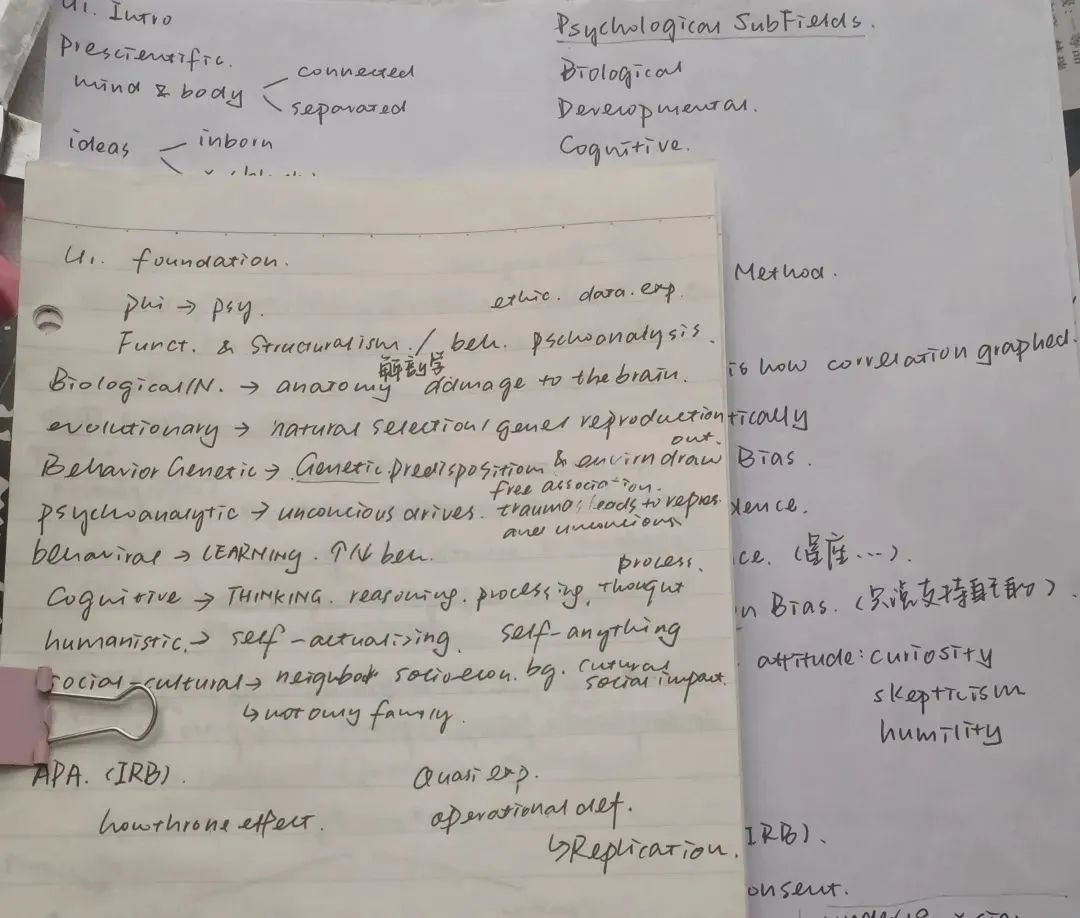 U1. Intro
Prescientific.
mind & body
connected
separated
ideas
inborn
Psychological SubFields.
Biological
Developmental.
Cognitive.
U1. foundation.
phi → psy.
ethic. data. exp.
Funct. & Structuralism. / beh. pschoanalysis.
解剖学
Biological/N. → anatomy damage to the brain.
evolutionary → natural selection/genes reproduction
out.
Behavior Genetic → Genetic predisposition & envirn draw
free association.
psychoanalytic → unconcious drives. trauma leads to repres
unconcious
behaviral → LEARNING. ↑/↓ beh.
process.
Cognitive → THINKING. reasoning. processing. thought
humanistic. → self-actualizing. self-anything
social-cultural → neighbor socioecon. bg. cutural
social impact.
↳ not omy family.
APA. (IRB).
Quasi exp.
howthrone effect.
operational def.
↳ Replication.
Method.
is how correlation graphed.
tically
Bias.
dence.
ce. (星座...).
n Bias. (只说支持自己的).
attitude: curiosity
skepticism
humility
IRB).
onsent.